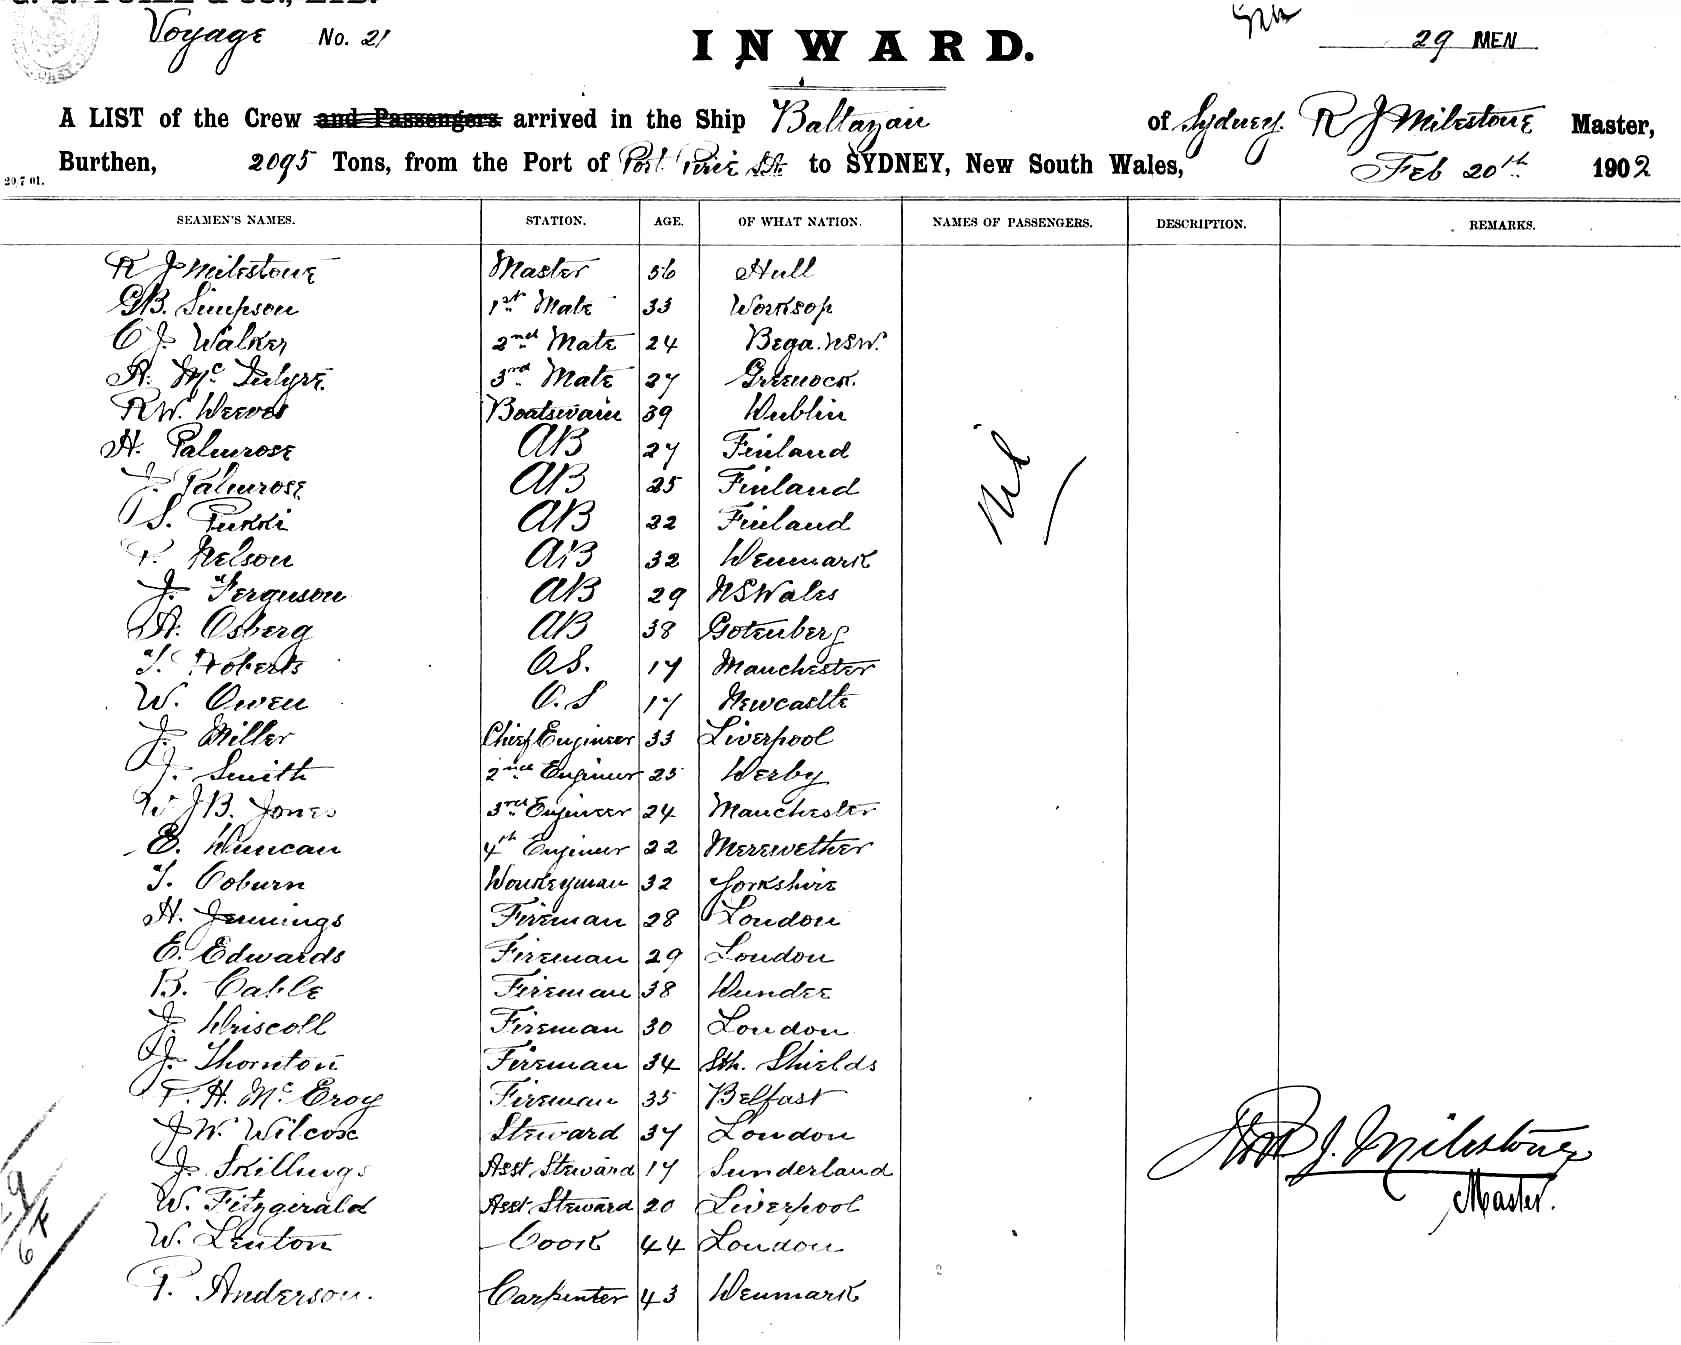 Voyage No. 21
INWARD.
29 MEN
A LIST of the Crew and Passengers arrived in the Ship Baltazan of Sydney. R J Milestone Master,
Burthen, 2095 Tons, from the Port of Port Pirie to SYDNEY, New South Wales, Feb 20th 1902
20.7.01.
SEAMEN'S NAMES. STATION. AGE. OF WHAT NATION. NAMES OF PASSENGERS. DESCRIPTION. REMARKS.
R J Milestone Master 56 Hull
G B. Simpson 1st Mate 33 Worksop
C J. Walker 2nd Mate 24 Bega. NSW.
A. McIntyre 3rd Mate 27 Greenock.
R W. Deeves Boatswain 39 Dublin
H. Palmrose AB 27 Finland
J. Palmrose AB 25 Finland
S. Pukki AB 22 Finland
P. Nelson AB 32 Denmark
J. Ferguson AB 29 NSWales
A. Osberg AB 38 Gotenberg
T. Roberts O.S. 17 Manchester
W. Owen O.S 17 Newcastle
J. Miller Chief Engineer 33 Liverpool
J. Smith 2nd Engineer 25 Derby
W J B. Jones 3rd Engineer 24 Manchester
E. Duncan 4th Engineer 22 Merewether
T. Coburn Donkeyman 32 Yorkshire
H. Jennings Fireman 28 London
E. Edwards Fireman 29 London
B. Cable Fireman 38 Dundee
J. Driscoll Fireman 30 London
J. Thornton Fireman 34 Sth. Shields
P. H. McEroy Fireman 35 Belfast
J W. Wilcox Steward 37 London
J. Skillings Asst Steward 17 Sunderland
W. Fitzgerald Asst Steward 20 Liverpool
W. Lenton Cook 44 London
P. Anderson. Carpenter 43 Denmark
Nil
R J. Milestone
Master.